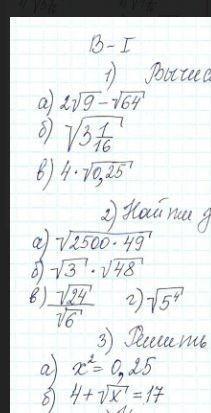 В-I
1) Вычис
а) 2√9 - √64
б) √3 1/16
в) 4 · √0,25
2) Найти
а) √2500 · 49
б) √3 · √48
в) √24/√6 г) √5⁴
3) Решить
а) x² = 0,25
б) 4 + √x = 17